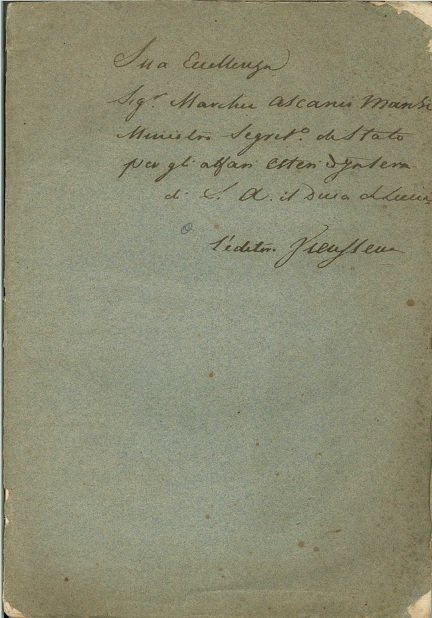 Sua Eccellenza
Sigr Marchse Ascanio Mansi
Ministro Segreto. di Stato
per gli affari esteri ed
di S. A. il Duca di Lucca
l'editore Vieusseux